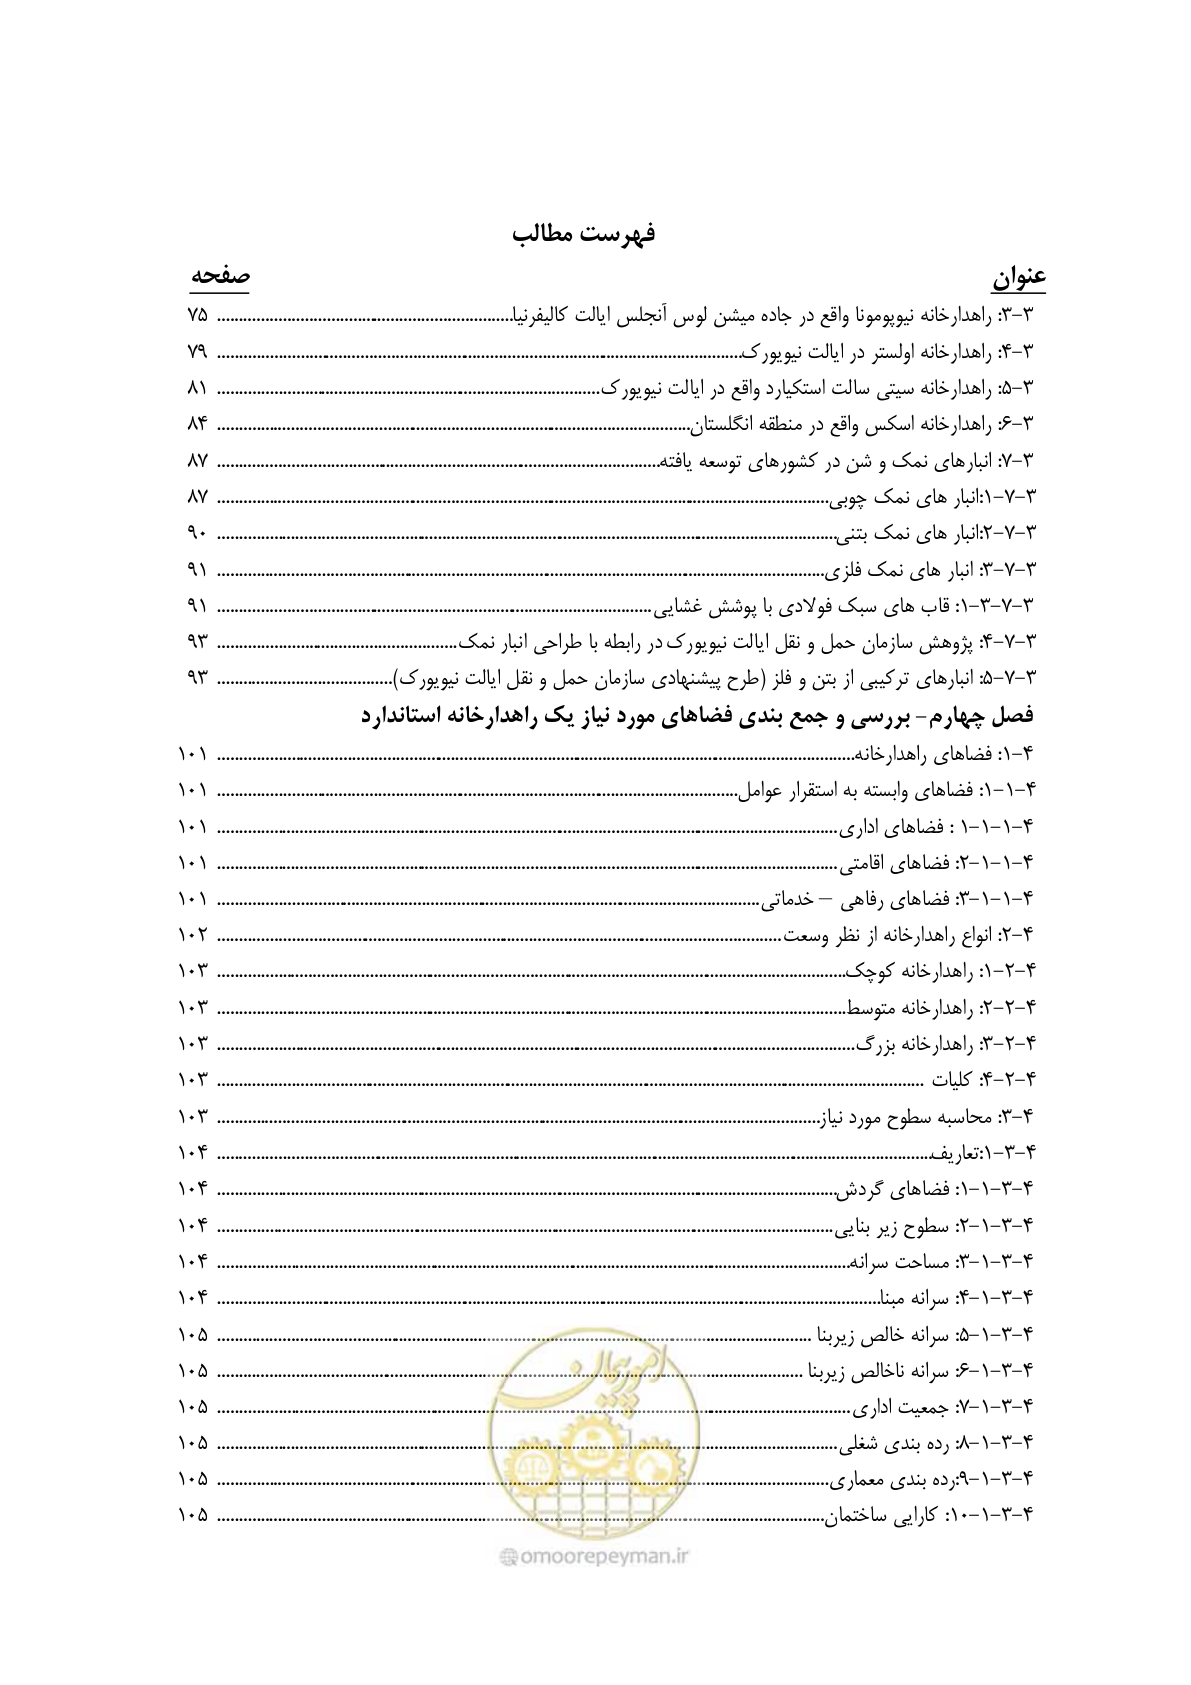 فهرست مطالب
عنوان صفحه
۳-۳: راهدارخانه نیوپومونا واقع در جاده میشن لوس آنجلس ایالت کالیفرنیا................ ۷۵
۴-۳: راهدارخانه اولستر در ایالت نیویورک................ ۷۹
۵-۳: راهدارخانه سیتی سالت استکیارد واقع در ایالت نیویورک................ ۸۱
۶-۳: راهدارخانه اسکس واقع در منطقه انگلستان................ ۸۴
۷-۳: انبارهای نمک و شن در کشورهای توسعه یافته................ ۸۷
۱-۷-۳:انبار های نمک چوبی................ ۸۷
۲-۷-۳:انبار های نمک بتنی................ ۹۰
۳-۷-۳: انبار های نمک فلزی................ ۹۱
۱-۳-۷-۳: قاب های سبک فولادی با پوشش غشایی................ ۹۱
۴-۷-۳: پژوهش سازمان حمل و نقل ایالت نیویورک در رابطه با طراحی انبار نمک................ ۹۳
۵-۷-۳: انبارهای ترکیبی از بتن و فلز (طرح پیشنهادی سازمان حمل و نقل ایالت نیویورک)................ ۹۳
فصل چهارم- بررسی و جمع بندی فضاهای مورد نیاز یک راهدارخانه استاندارد
۱-۴: فضاهای راهدارخانه................ ۱۰۱
۱-۱-۴: فضاهای وابسته به استقرار عوامل................ ۱۰۱
۱-۱-۱-۴ : فضاهای اداری................ ۱۰۱
۲-۱-۱-۴: فضاهای اقامتی................ ۱۰۱
۳-۱-۱-۴: فضاهای رفاهی – خدماتی................ ۱۰۱
۲-۴: انواع راهدارخانه از نظر وسعت................ ۱۰۲
۱-۲-۴: راهدارخانه کوچک................ ۱۰۳
۲-۲-۴: راهدارخانه متوسط................ ۱۰۳
۳-۲-۴: راهدارخانه بزرگ................ ۱۰۳
۴-۲-۴: کلیات ................ ۱۰۳
۳-۴: محاسبه سطوح مورد نیاز................ ۱۰۳
۱-۳-۴:تعاریف................ ۱۰۴
۱-۱-۳-۴: فضاهای گردش................ ۱۰۴
۲-۱-۳-۴: سطوح زیر بنایی................ ۱۰۴
۳-۱-۳-۴: مساحت سرانه................ ۱۰۴
۴-۱-۳-۴: سرانه مبنا................ ۱۰۴
۵-۱-۳-۴: سرانه خالص زیربنا ................ ۱۰۵
۶-۱-۳-۴: سرانه ناخالص زیربنا ................ ۱۰۵
۷-۱-۳-۴: جمعیت اداری................ ۱۰۵
۸-۱-۳-۴: رده بندی شغلی................ ۱۰۵
۹-۱-۳-۴:رده بندی معماری................ ۱۰۵
۱۰-۱-۳-۴: کارایی ساختمان................ ۱۰۵
امور پیمان
@omoorepeyman.ir